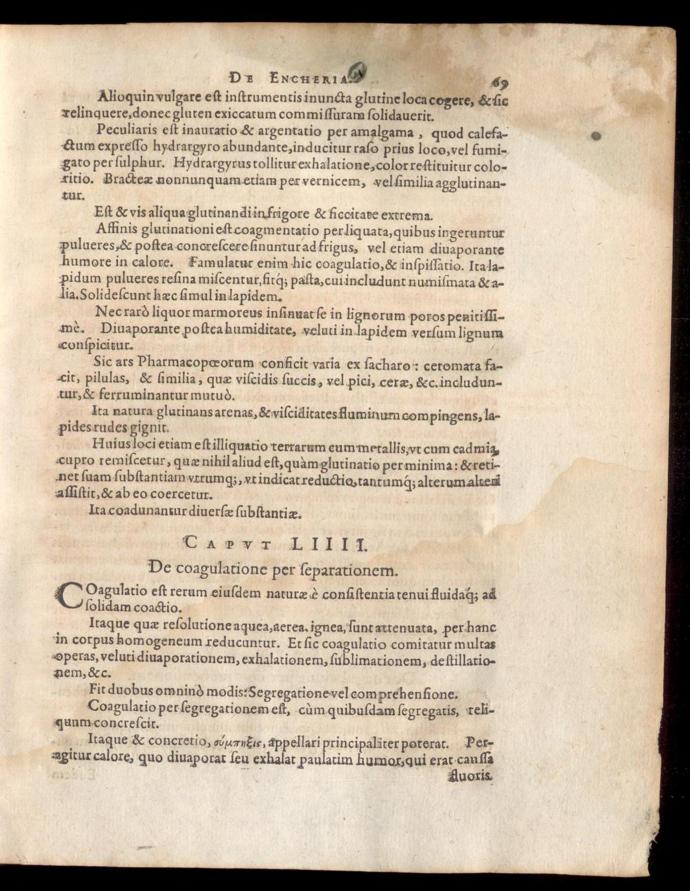 DE ENCHERIA.
69
Alioquin vulgare est instrumentis inuncta glutine loca cogere, & sic
relinquere, donec gluten exiccatum commissuram solidauerit.
Peculiaris est inauratio & argentatio per amalgama, quod calefa-
ctum expresso hydrargyro abundante, inducitur raso prius loco, vel fumi-
gato per sulphur. Hydrargyrus tollitur exhalatione, color restituitur colo-
ritio. Bracteæ nonnunquam etiam per vernicem, vel similia agglutinan-
tur.
Est & vis aliqua glutinandi in frigore & siccitate extrema.
Affinis glutinationi est coagmentatio per liquata, quibus ingeruntur
pulueres, & postea concrescere sinuntur ad frigus, vel etiam diuaporante
humore in calore. Famulatur enim hic coagulatio, & inspissatio. Ita la-
pidum pulueres resina miscentur, fitq; pasta, cui includunt numismata & a-
lia. Solidescunt hæc simul in lapidem.
Nec rarò liquor marmoreus insinuat se in lignorum poros penitissi-
mè. Diuaporante postea humiditate, veluti in lapidem versum lignum
conspicitur.
Sic ars Pharmacopœorum conficit varia ex sacharo: ceromata fa-
cit, pilulas, & similia, quæ viscidis succis, vel pici, ceræ, &c. includun-
tur, & ferruminantur mutuò.
Ita natura glutinans arenas, & visciditates fluminum compingens, la-
pides rudes gignit.
Huius loci etiam est illiquatio terrarum cum metallis, vt cum cadmia
cupro remiscetur, quæ nihil aliud est, quàm glutinatio per minima: & reti-
net suam substantiam vtrumq;, vt indicat reductio, tantumq; alterum alteri
assistit, & ab eo coercetur.
Ita coadunantur diuersæ substantiæ.
CAPVT LIIII.
De coagulatione per separationem.
COagulatio est rerum eiusdem naturæ è consistentia tenui fluidaq́; ad
solidam coactio.
Itaque quæ resolutione aquea, aerea, ignea, sunt attenuata, per hanc
in corpus homogeneum reducuntur. Et sic coagulatio comitatur multas
operas, veluti diuaporationem, exhalationem, sublimationem, destillatio-
nem, &c.
Fit duobus omninò modis: Segregatione vel comprehensione.
Coagulatio per segregationem est, cùm quibusdam segregatis, reli-
quum concrescit.
Itaque & concretio, σύμπηξις, appellari principaliter poterat. Per-
agitur calore, quo diuaporat seu exhalat paulatim humor, qui erat caussa
fluoris.